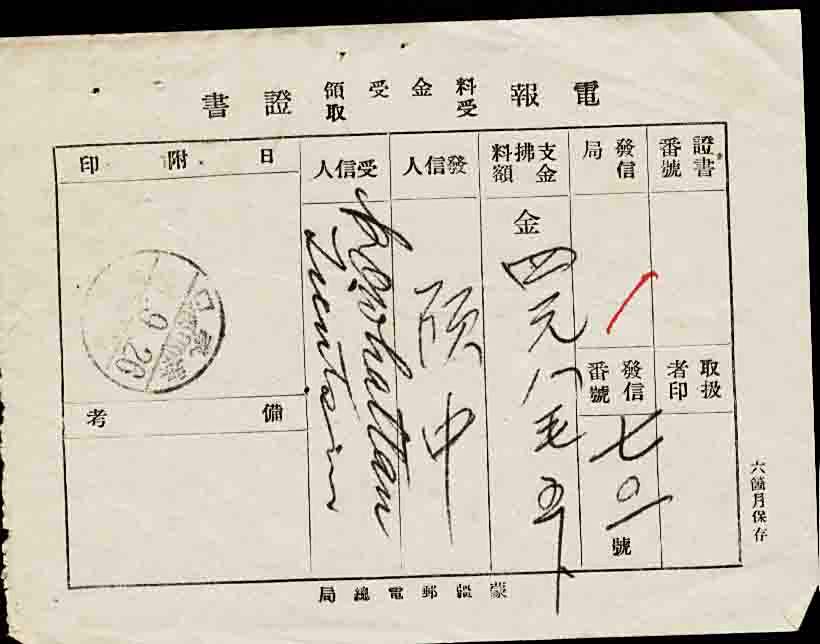 電報料金受領證書
受取
證書番號
發信局
支拂料金額
發信人
受信人
日附印
金四元八毛五
中
Tientsin
9.26
取扱者印
發信番號
七〇一號
備考
六箇月保存
蒙疆郵電總局